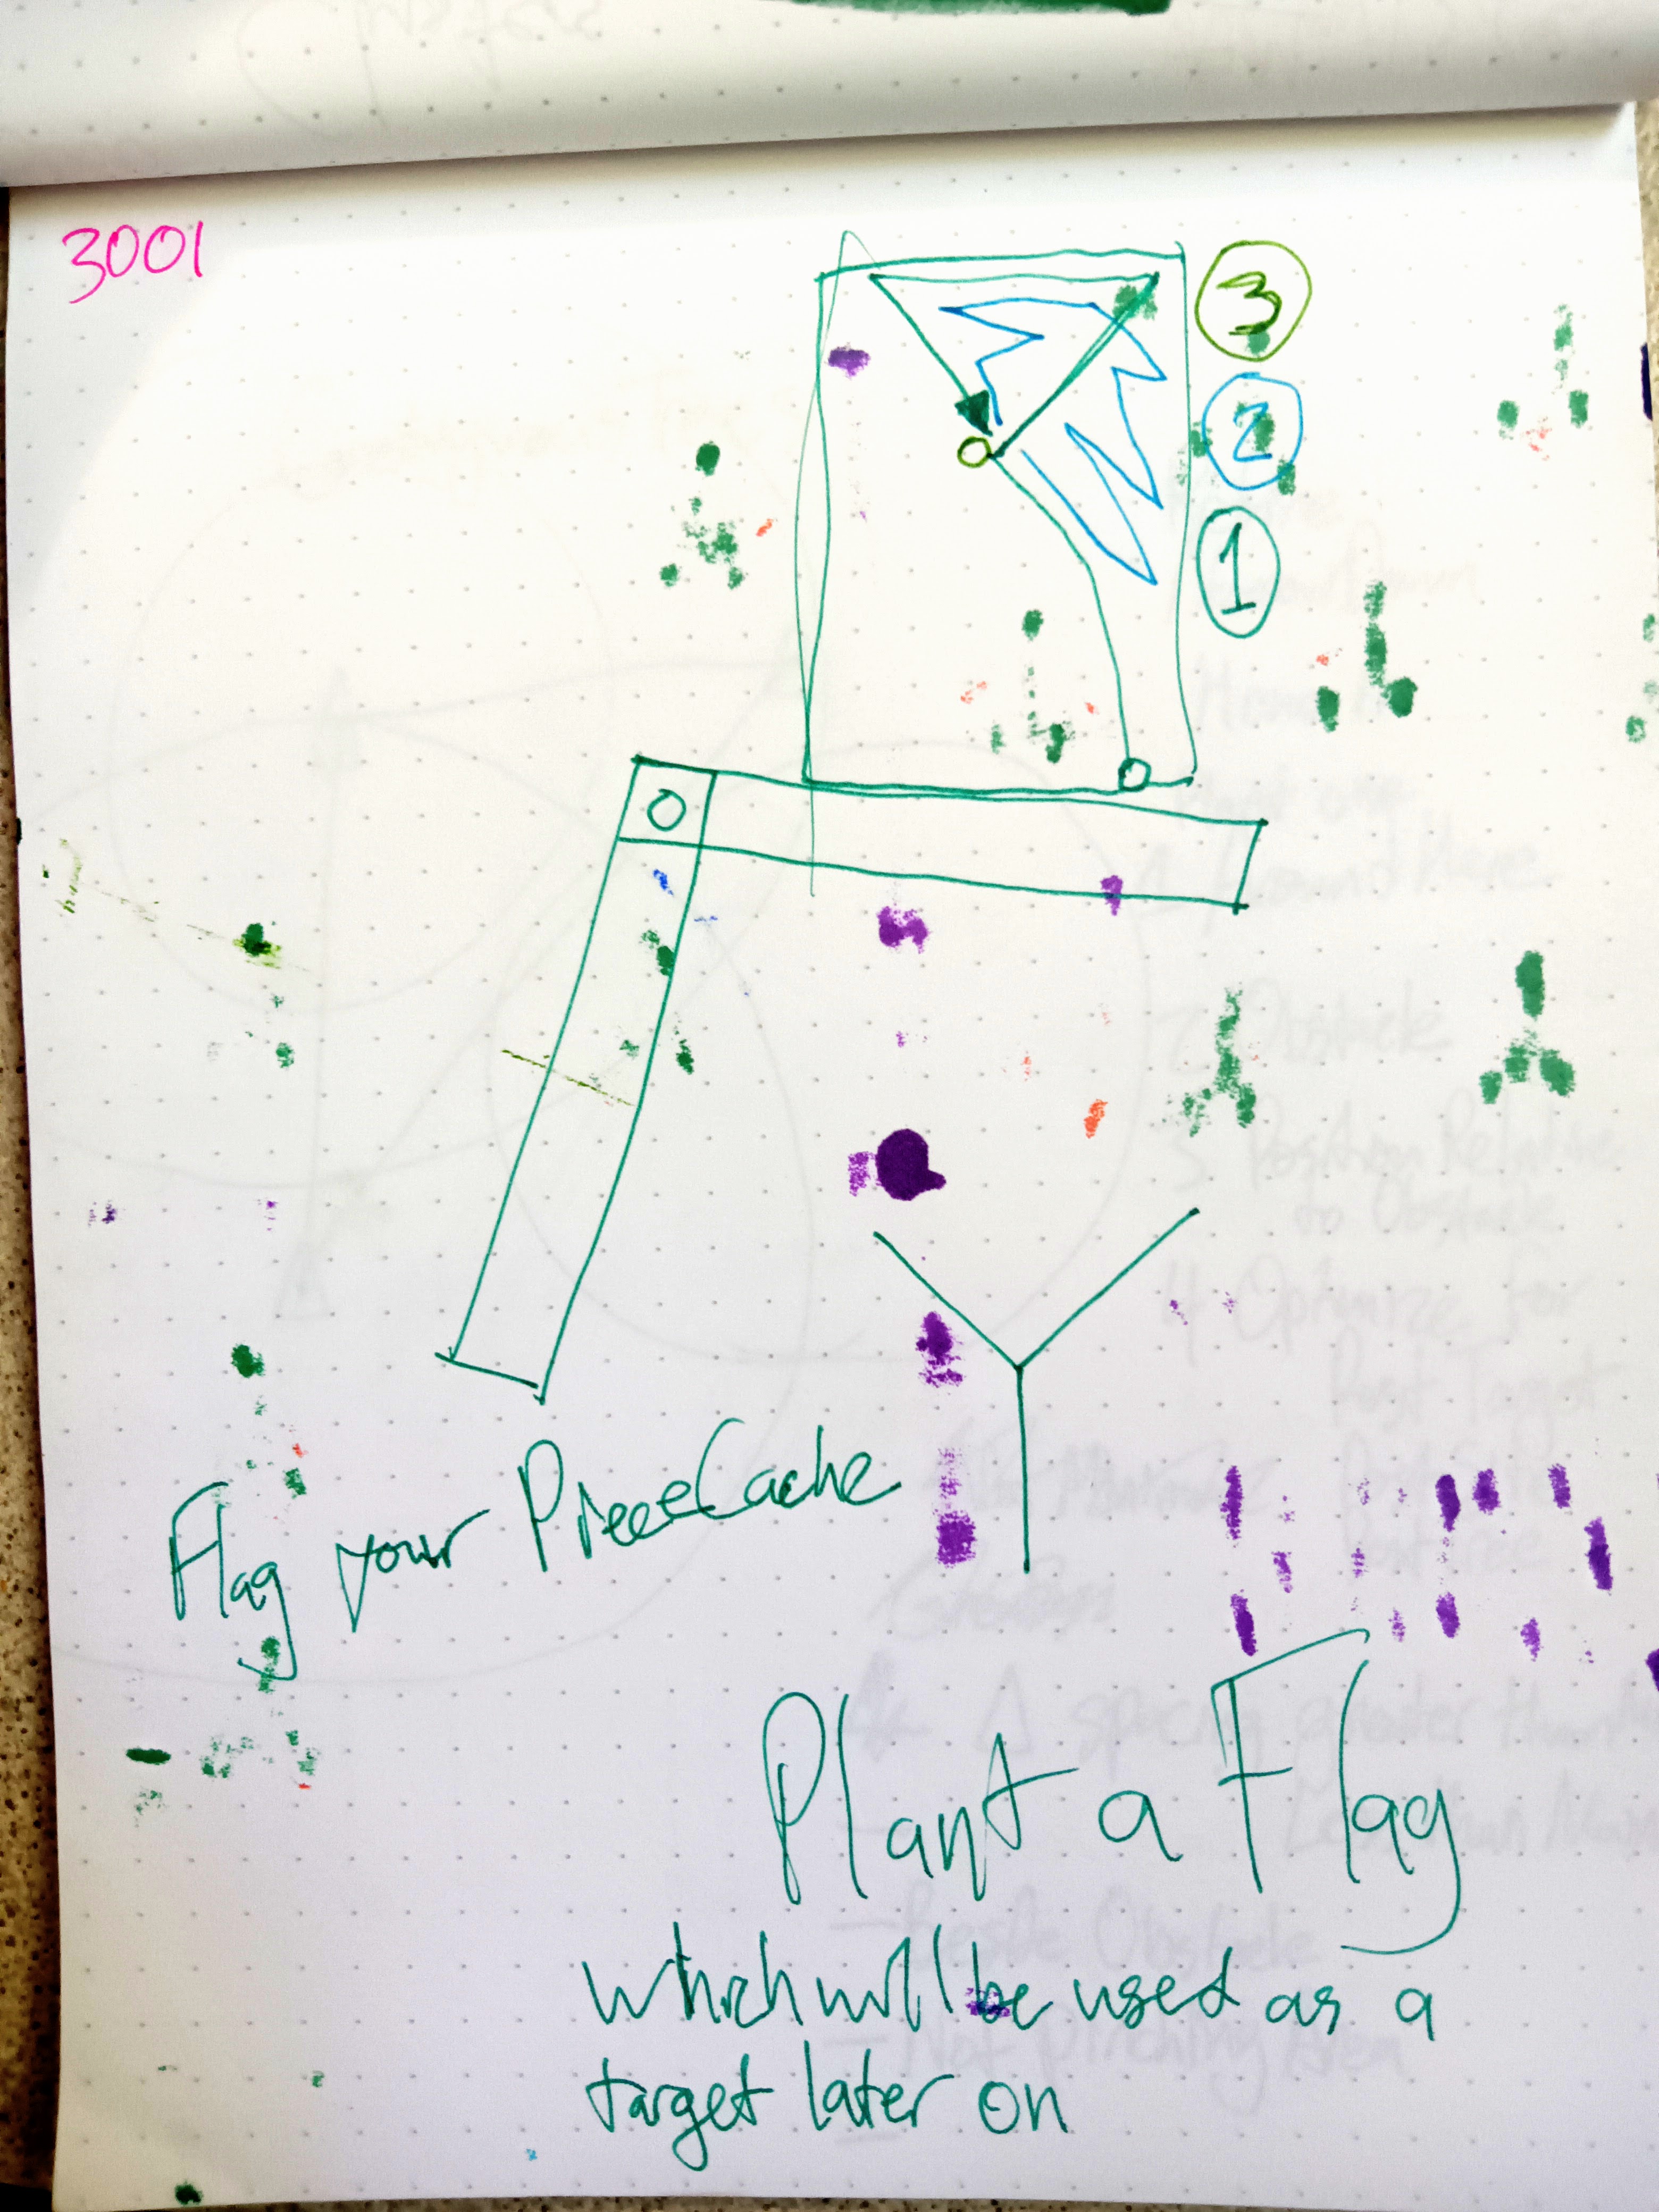 3001
3
2
1
Flag your PieceCache
Plant a Flag
which will be used as a
target later on